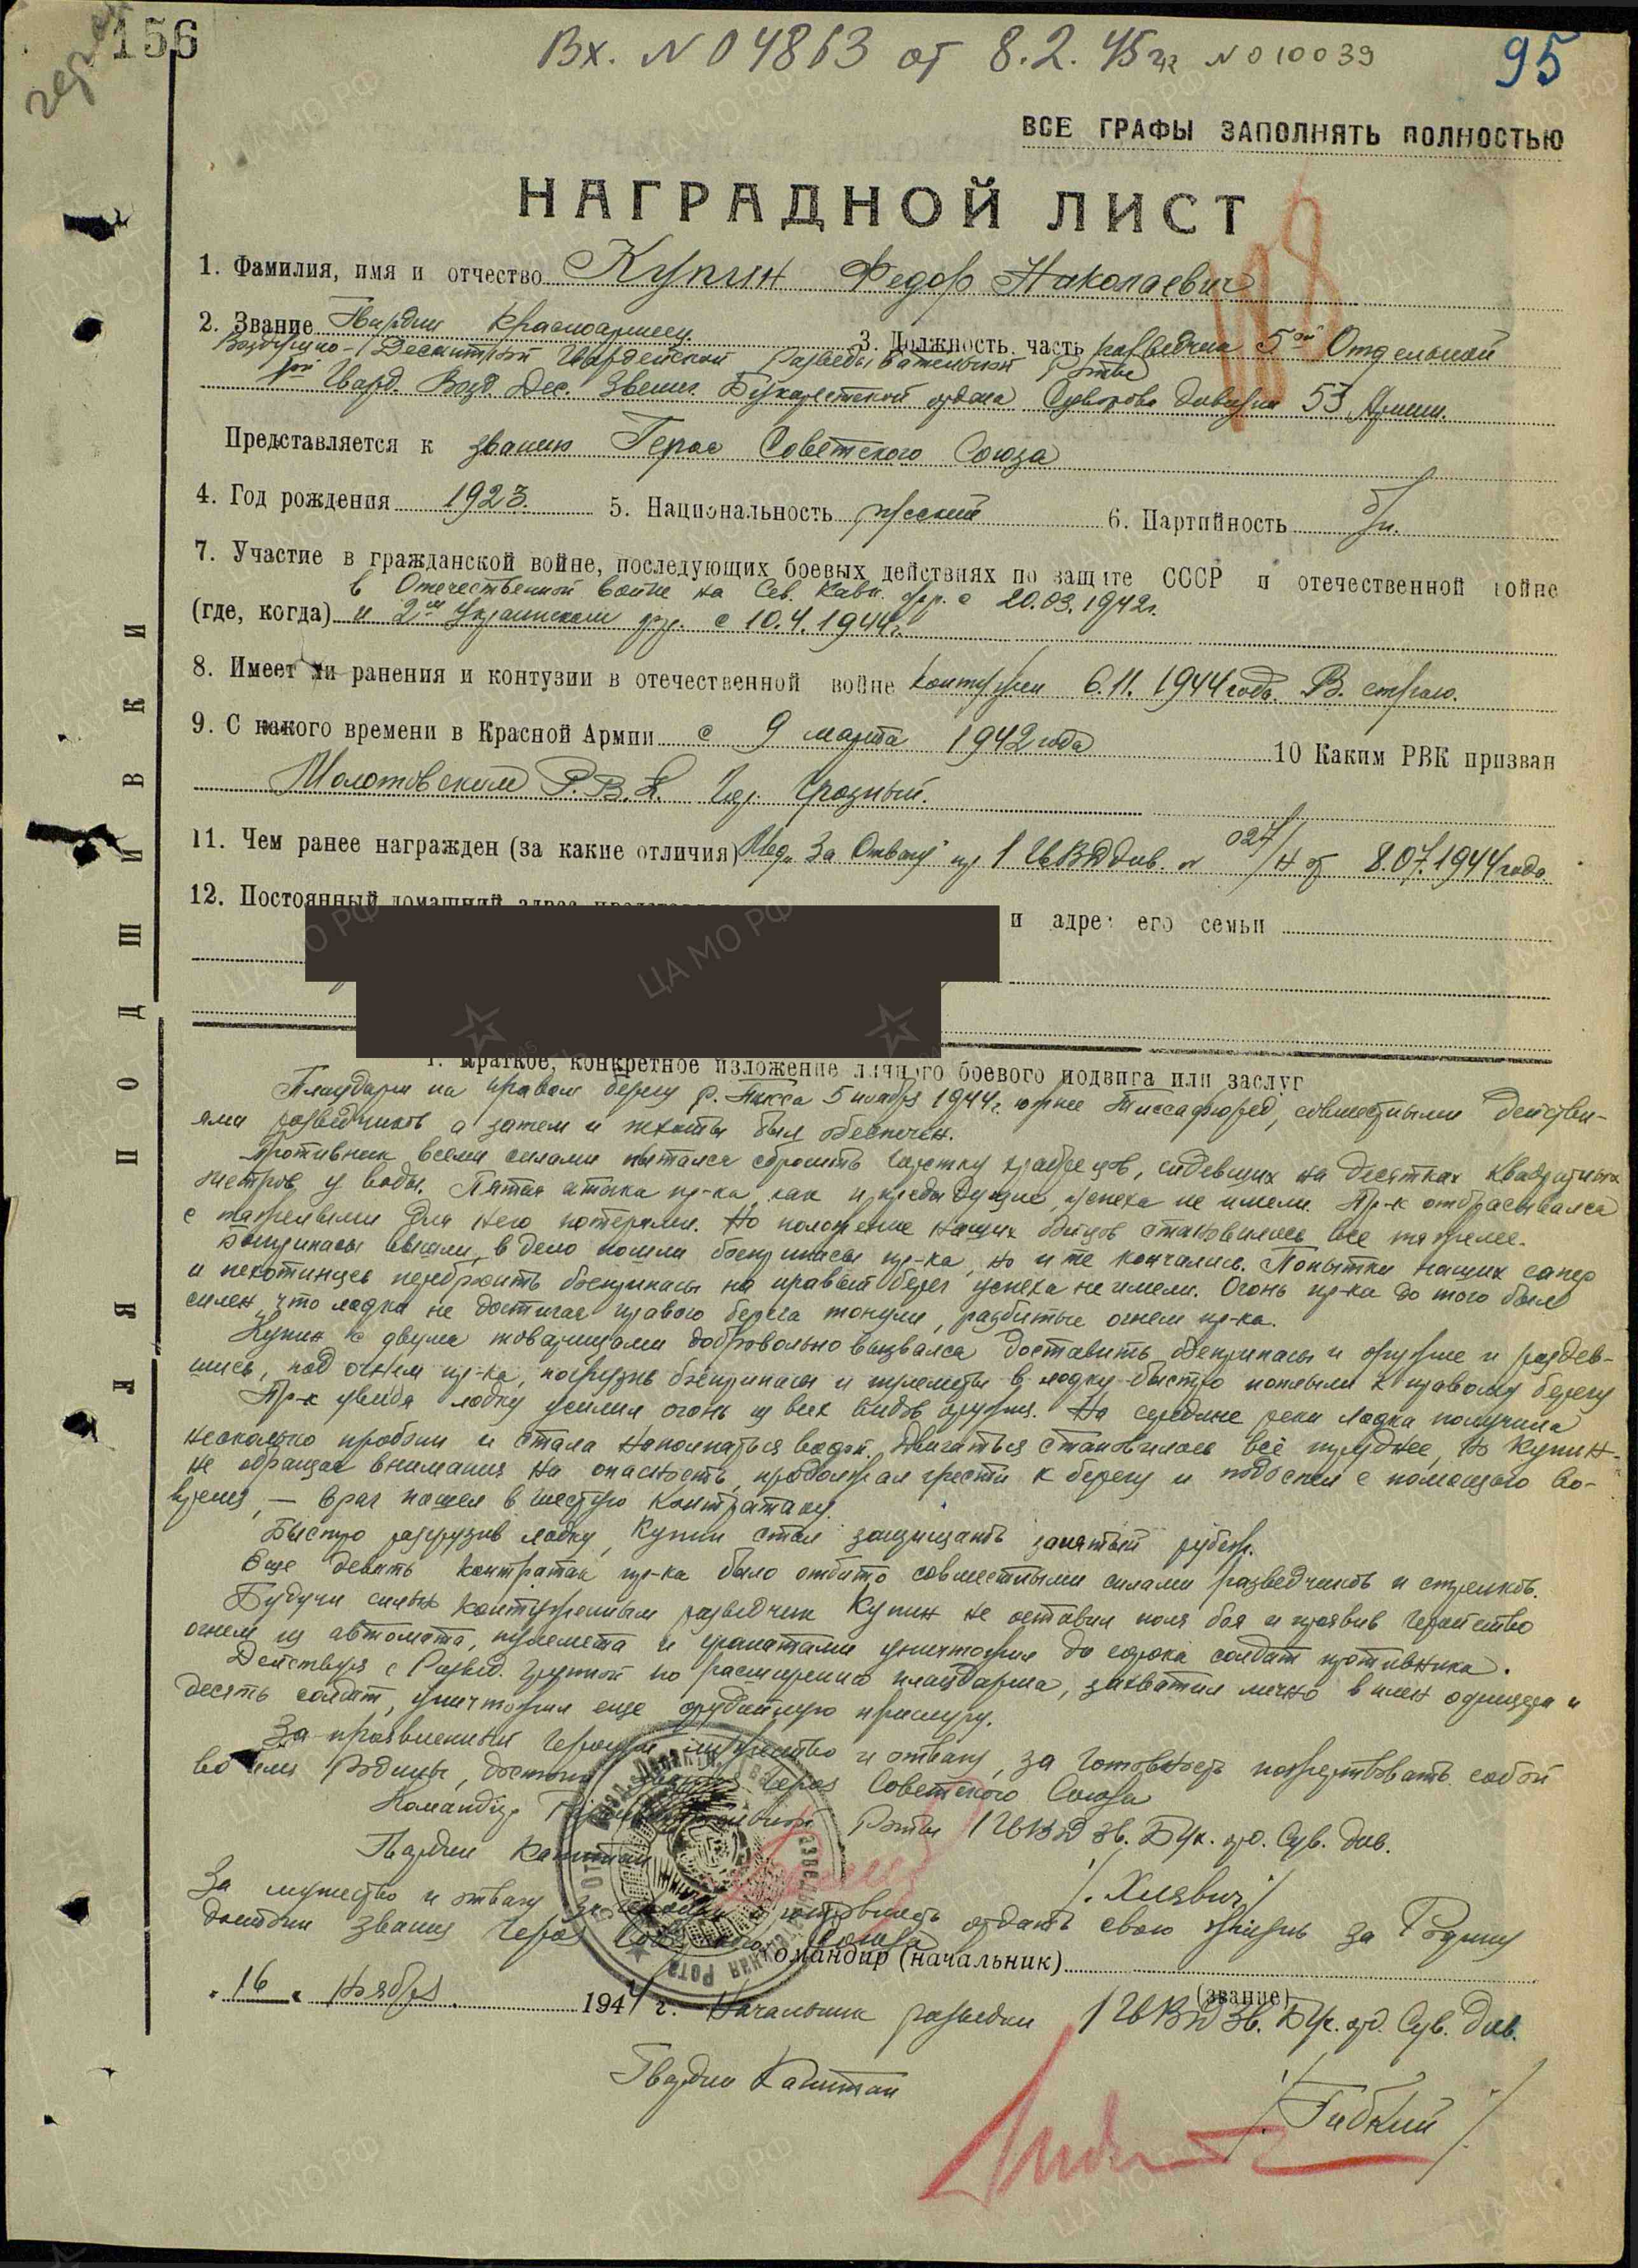 156
Вх. № 04863 от 8.2.45 г. № 010039
95
ВСЕ ГРАФЫ ЗАПОЛНЯТЬ ПОЛНОСТЬЮ
НАГРАДНОЙ ЛИСТ
1. Фамилия, имя и отчество Купин Федор Николаевич
2. Звание Гвардии Красноармеец. 3. Должность, часть разведчик 5ой Отдельной
Воздушно-Десантной Гвардейской Разведывательной Роты
1ой Гвард. Возд. Дес. Звениг. Бухарестской ордена Суворова дивизии 53 Армии.
Представляется к званию Героя Советского Союза
4. Год рождения 1923. 5. Национальность русский 6. Партийность б/п.
7. Участие в гражданской войне, последующих боевых действиях по защите СССР и отечественной войне
в Отечественной войне на Сев. Кавк. фр. с 20.03.1942г.
(где, когда) и 2ом Украинском фр. с 10.4.1944г.
8. Имеет ли ранения и контузии в отечественной войне Контужен 6.11.1944 года. В. строю.
9. С какого времени в Красной Армии с 9 марта 1942 года 10 Каким РВК призван
Молотовским Р.В.К. Гор. Грозный.
11. Чем ранее награжден (за какие отличия) Мед. „За Отвагу" пр 1 ГвВДДив. № 024/н от 8.07.1944 года.
12. Постоянный домашний адрес и адрес его семьи
1. Краткое, конкретное изложение личного боевого подвига или заслуг
Плацдарм на правом берегу р. Тисса 5 ноября 1944г. южнее Тиссафюред, совместными действи-
ями разведчиков а затем и пехоты был обеспечен.
Противник всеми силами пытался сбросить горстку храбрецов, сидевших на десятках квадратных
метров у воды. Пятая атака пр-ка, как и предыдущие, успеха не имели. Пр-к отбрасывался
с тяжелыми для него потерями. Но положение наших бойцов становилось все тяжелее.
Боеприпасы вышли, в дело пошли боеприпасы пр-ка, но и те кончались. Попытки наших сапер
и пехотинцев перебросить боеприпасы на правый берег успеха не имели. Огонь пр-ка до того был
силен, что лодки не достигая правого берега тонули, разбитые огнем пр-ка.
Купин с двумя товарищами добровольно вызвался доставить боеприпасы и оружие и раздев-
шись, под огнем пр-ка, погрузив боеприпасы и пулеметы в лодку быстро поплыли к правому берегу
Пр-к увидя лодку усилил огонь из всех видов оружия. На середине реки лодка получила
несколько пробоин и стала наполняться водой. Двигаться становилось всё труднее, но Купин-
не обращая внимания на опасность, продолжал грести к берегу и подоспел с помощью во-
время, — враг пошел в шестую контратаку.
Быстро разгрузив лодку, Купин стал защищать занятый рубеж.
Еще девять контратак пр-ка было отбито совместными силами разведчиков и стрелков.
Будучи сильно контуженным разведчик Купин не оставил поля боя и проявив геройство
огнем из автомата, пулемета и гранатами уничтожил до сорока солдат противника.
Действуя с Развед. группой по расширению плацдарма, захватил лично в плен офицера и
десять солдат, уничтожил еще орудийную прислугу.
За проявленный героизм мужество и отвагу, за готовность пожертвовать собой
во имя Родины, достоин звания Героя Советского Союза
Командир Роты 1 ГвВДД Зв. Бук. ор. Сув. див.
Гвардии Капитан
/. Хилявич /
За мужество и отвагу за героизм и готовность отдать свою жизнь за Родину
достоин звания Героя Советского Союза
Командир (начальник)
(звание)
„16" ноября 1944 г. Начальник разведки 1 ГвВДД Зв. Бук. ор. Сув. див.
Гвардии Капитан
/. Гибкий /.
ДЛЯ ПОДШИВКИ
ЦА МО РФ